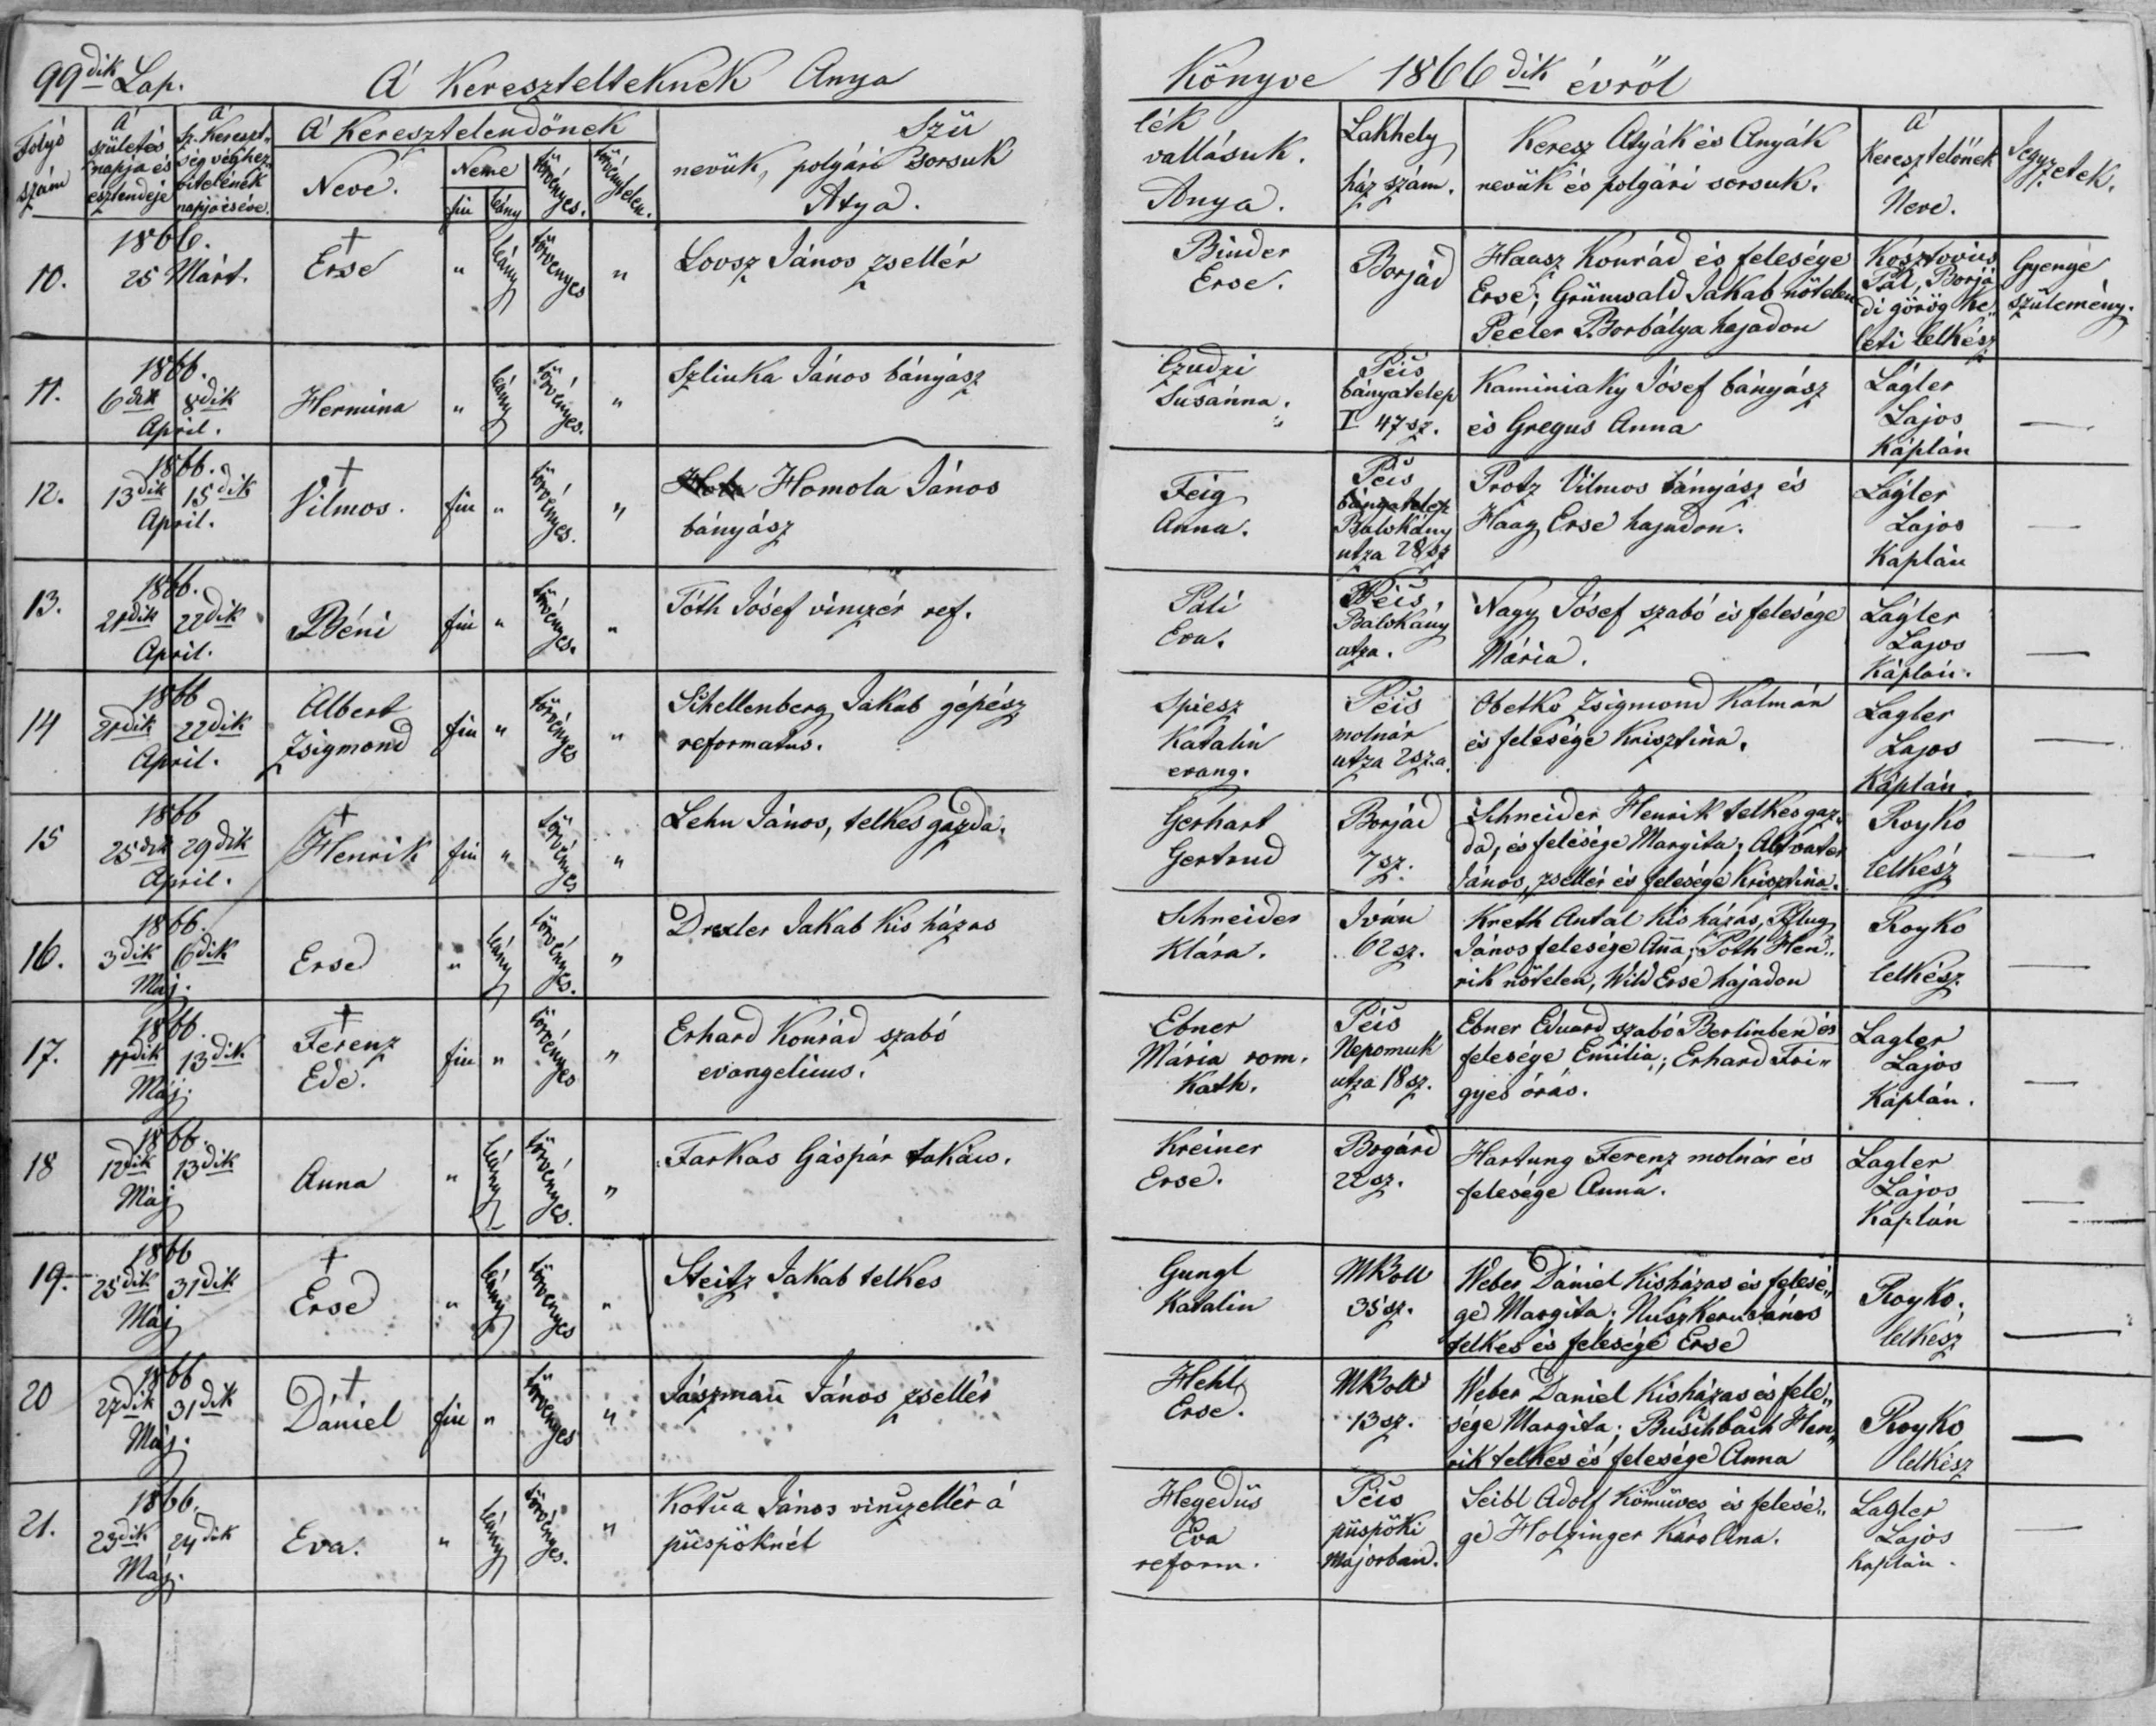 99dik Lap. A' Keresztelteknek Anya Könyve 1866dik évről
Folyó szám
A' születés napja és esztendeje
A' Sz. Kereszt„ség véghez vitelének napja és éve.
A' Keresztelendőnek
Neve.
Neme
fiu
leány
törvényes.
törvénytelen.
Szü
nevük, polgári sorsuk
Atya.
lék
vallásuk.
Anya.
Lakhely
ház szám.
Keresz Atyák és Anyák
nevük és polgári sorsuk.
A'
Keresztelőnek
Neve.
Jegyzetek.
10.
1866.
25 Márt.
†
Erse
"
leány
törvényes
"
Lovsz János zsellér
Binder
Erse.
Borjád
Haasz Konrád és felesége
Erse; Grünwald Jakab nőtelen
Pecler Borbálya hajadon
Kósztovius
Pál, Borjá
di görög ke„
leti lelkész
Gyenge
szülemény.
11.
1866.
6dik 8dik
April.
Hermina
"
leány
törvényes.
"
Szlinka János bányász
Czudzi
Susánna.
Pécs
bányatelep
I 47 sz.
Kaminiaky Jósef bányász
és Gregus Anna
Lágler
Lajos
Káplán
12.
1866.
13dik 15dik
April.
†
Vilmos.
fiu
"
törvényes.
"
Homola János
bányász
Feig
Anna.
Pécs
bányatelep
Balokány
utza 28 sz
Protz Vilmos bányász és
Haag Erse hajadon.
Lágler
Lajos
Káplán
13.
1866.
21dik 22dik
April.
Béni
fiu
"
törvényes.
"
Tóth Jósef vinczér ref.
Páli
Eva.
Pécs
Balokány
utza.
Nagy Jósef szabó és felesége
Mária.
Lágler
Lajos
Káplán.
14
1866
21dik 22dik
April.
Albert
Zsigmond
fiu
"
törvényes
"
Schellenberg Jakab gépész
reformatus.
Spiesz
Katalin
evang.
Pécs
molnár
utza 2 sz.a.
Obetko Zsigmond Kalmán
és felesége Krisztina.
Lagler
Lajos
Káplán.
15
1866
25dik 29dik
April.
†
Henrik
fiu
"
törvényes
"
Lehn János, telkes gazda.
Gerhart
Gertrud
Borjád
7 sz.
Schneider Henrik telkes gaz„
da, és felesége Margita; Altvater
János, zsellér és felesége Krisztina.
Royko
lelkész
16.
1866.
3dik 6dik
Maj.
Erse
"
leány
törvényes.
"
Drexler Jakab kis házas
Schneider
Klára.
Iván
62 sz.
Kreth Antal kis házas, Pflug
János felesége Aña; Póth Hen„
rik nőtelen, Wild Erse hajadon
Royko
lelkész
17.
1866.
11dik 13dik
Máj.
†
Ferenz
Ede.
fiu
"
törvényes
"
Erhard Konrád szabó
evangelicus.
Ebner
Mária rom.
Kath.
Pécs
Nepomuk
utza 18 sz.
Ebner Eduard szabó Berlinben és
felesége Emilia; Erhard Fri„
gyes órás.
Lagler
Lajos
Káplán.
18
1866.
12dik 13dik
Máj
Anna
"
leány
törvényes.
"
Farkas Gáspár takács.
Kreiner
Erse.
Bogárd
22 sz.
Hartung Ferenz molnár és
felesége Anna.
Lagler
Lajos
Káplán
19.
1866
25dik 31dik
Máj
†
Erse
"
leány
törvényes
"
Steitz Jakab telkes
Gungl
Katalin
MBoll
35 sz.
Weber Dániel Kisházas és felesé„
ge Margita; Nuszkern János
telkes és felesége Erse
Royko.
lelkész
20
1866
27dik 31dik
Máj.
†
Dániel
fiu
"
törvényes
"
Jászmañ János zsellér
Hehl
Erse.
MBoll
13 sz.
Weber Daniel Kisházas és fele„
sége Margita; Buschbach Hen„
rik telkes és felesége Anna
Royko
lelkész
21.
1866.
23dik 24dik
Máj.
Eva.
"
leány
törvényes.
"
Kotua János vinczellér á
püspöknél
Hegedüs
Eva
reform.
Pécs
püspöki
Majorban.
Seibl Adolf Kömüves és felesé„
ge Holzinger Karolina.
Lagler
Lajos
Kaplán.